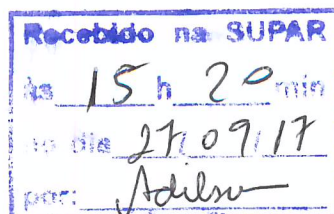 Recebido na SUPAR
às 15 h 20 min
no dia 27/09/17
por: Adilson